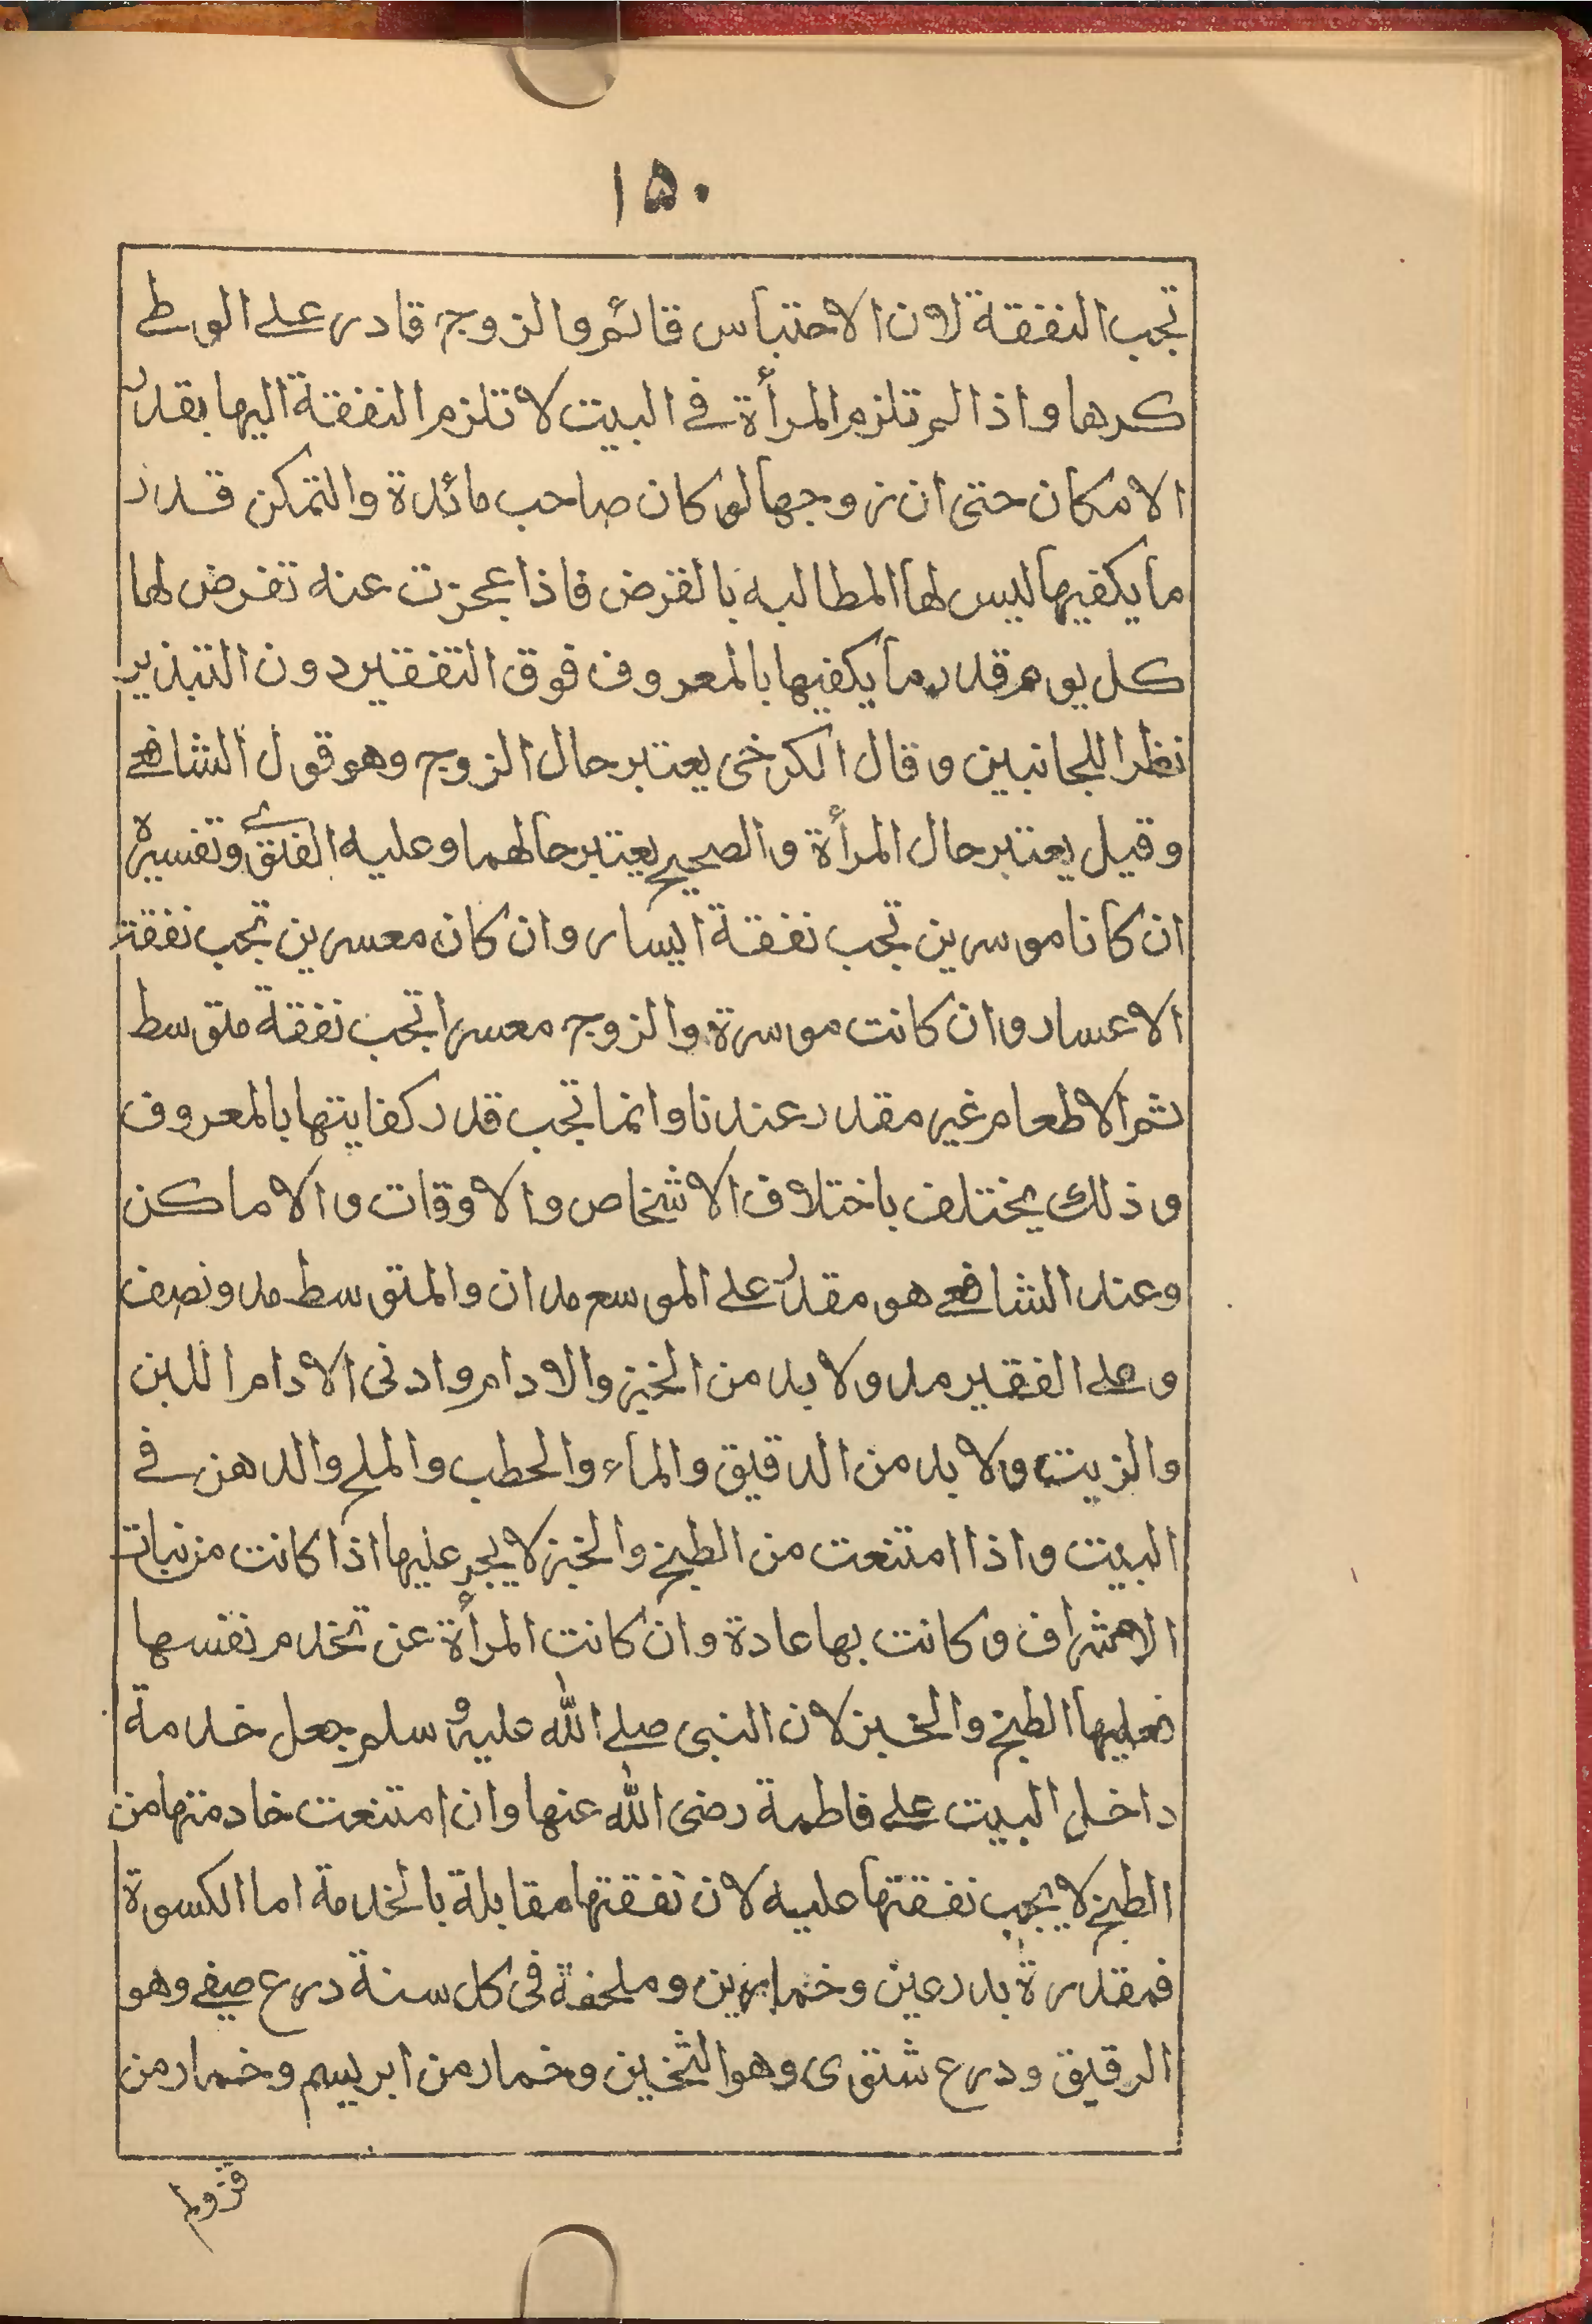 ١٥٠
تجب النفقة لان الاحتباس قائم والزوج قادر على الوطى
كرها واذا لم تلزم المرأة فى البيت لا تلزم النفقة اليها بقدر
الامكان حتى ان زوجها لو كان صاحب مائدة والتمكن قدر
ما يكفيها ليس لها المطالبه بالفرض فاذا عجزت عنه تفرض لها
كل يوم قدر ما يكفيها بالمعروف فوق التفقير دون التبذير
نظرا للجانبين وقال الكرخى يعتبر حال الزوج وهو قول الشافعى
وقيل يعتبر حال المرأة والصحيح يعتبر حالهما وعليه الفتوى وتفسيره
ان كانا موسرين تجب نفقة اليسار وان كان معسرين تجب نفقة
الاعسار وان كانت موسرة والزوج معسرا تجب نفقة متوسط
ثم الاطعام غير مقدر عندنا وانما تجب قدر كفايتها بالمعروف
وذلك يختلف باختلاف الاشخاص والاوقات والاماكن
وعند الشافعى هو مقدر على الموسع مدان والمتوسط مد ونصف
وعلى الفقير مد ولا بد من الخبز والادام وادنى الادام اللبن
والزيت ولا بد من الدقيق والماء والحطب والملح والدهن فى
البيت واذا امتنعت من الطبخ والخبز لا يجبر عليها اذا كانت من نبات
الاشراف وكانت بها عادة وان كانت المرأة عن تخدم نفسها
فعليها الطبخ والخبز لان النبى صلى الله عليه وسلم جعل خدمة
داخل البيت على فاطمة رضى الله عنها وان امتنعت خادمتها من
الطبخ لا يجب نفقتها عليه لان نفقتها مقابلة بالخدمة اما الكسوة
فمقدرة بدرعين وخمارين وملحفة فى كل سنة درع صيفى وهو
الرقيق ودرع شتوى وهو الثخين وخمار من ابريسم وخمار من